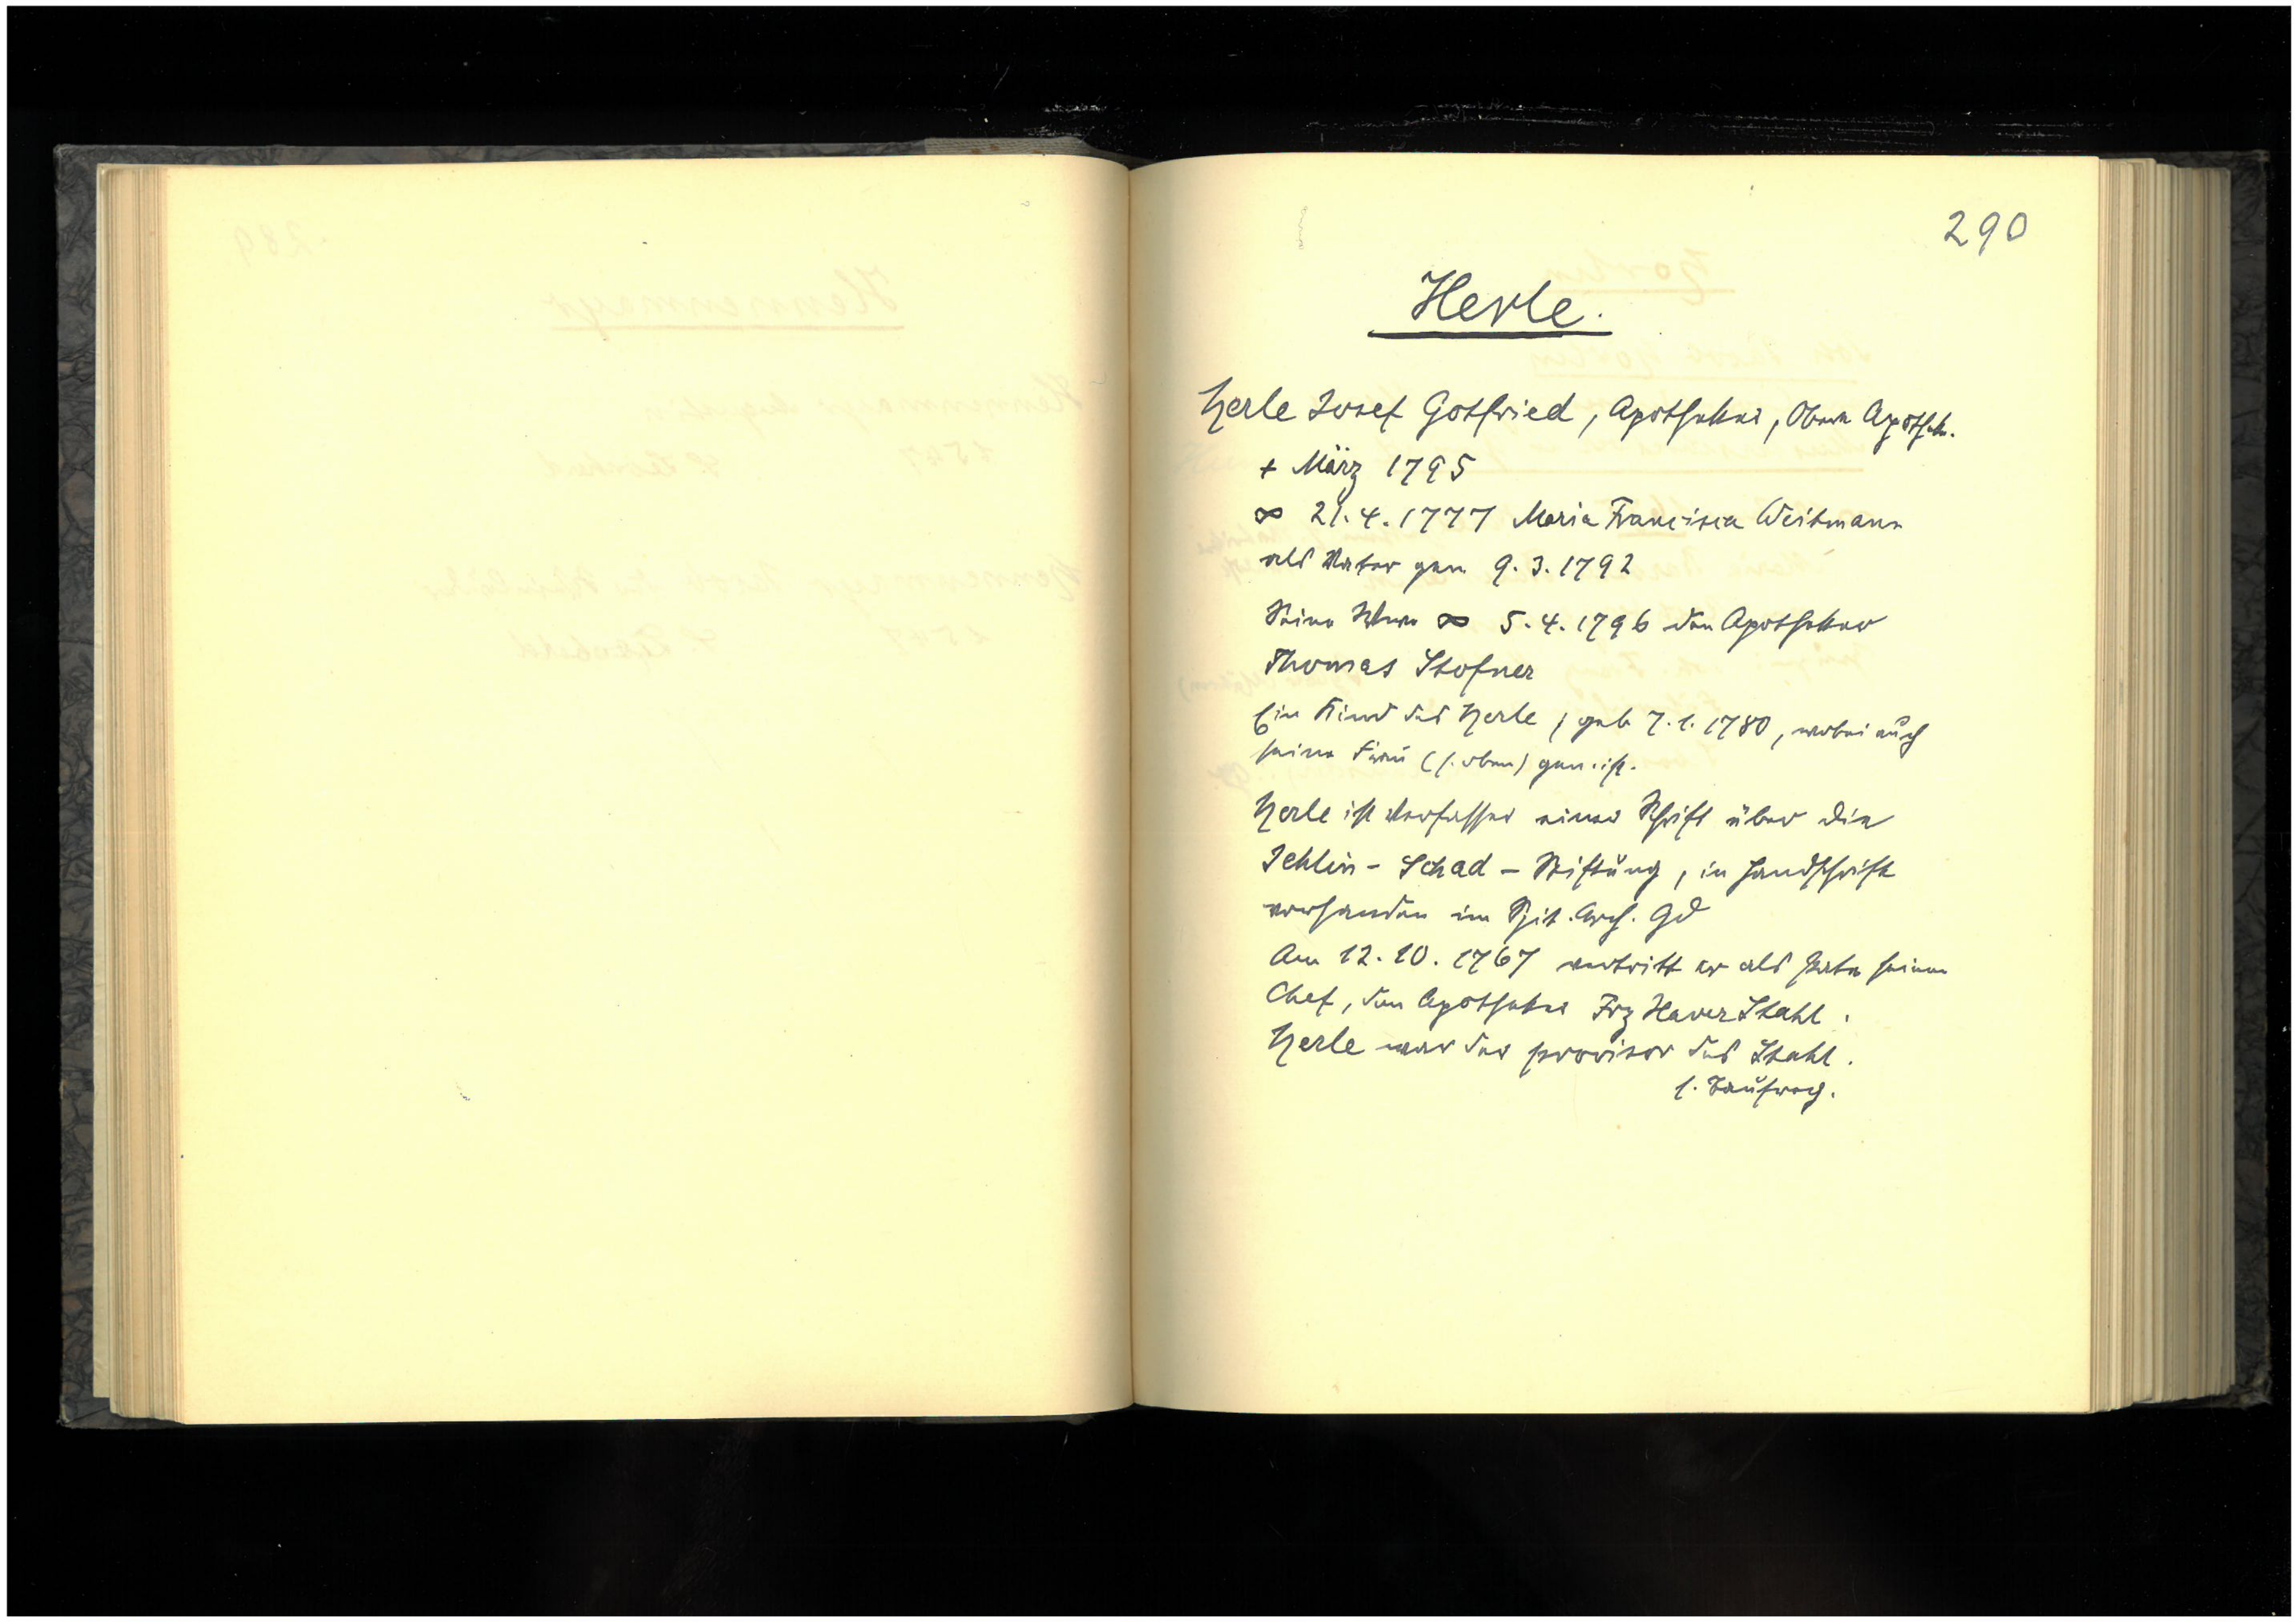 290
Herle.
Herle Josef Gottfried, Apotheker, Obere Apothek.
+ März 1795
∞ 21.4.1777 Maria Francisca Weitmann
als Vater gen. 9.3.1792
Seine Wwe ∞ 5.4.1796 den Apotheker
Thomas Stofner
Ein Kind des Herle, geb 7.1.1780, wobei auch
seine Frau (s. oben) gen. ist.
Herle ist Verfasser einer Schrift über die
Jehlin - Schad - Stiftung, in Handschrift
vorhanden im Spit. Arch. Gd
Am 12.10.1767 vertritt er als Pate seinen
Chef, den Apotheker Frz Xaver Stahl.
Herle war der provisor des Stahl.
s. Taufreg.